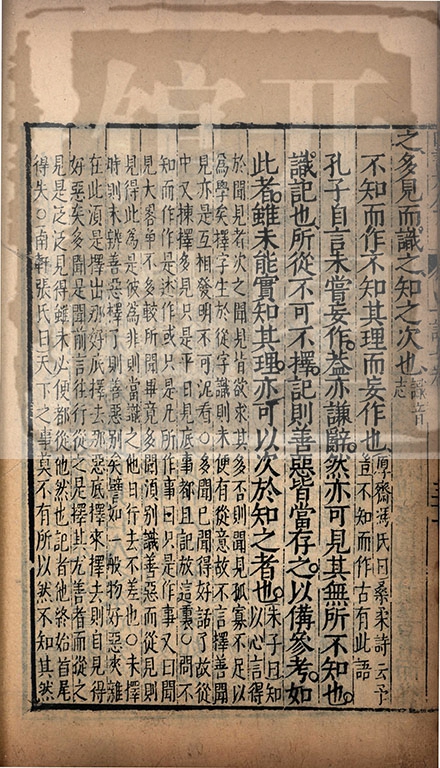 之多見而識之知之次也識音志
不知而作不知其理而妄作也厚齋馮氏曰桑柔詩云予豈不知而作古有此語
孔子自言未嘗妄作蓋亦謙辭然亦可見其無所不知也
識記也所從不可不擇記則善惡皆當存之以備參考如
此者雖未能實知其理亦可以次於知之者也朱子曰知以心言得
於聞見者次之聞見皆欲求其多否則聞見孤寡不足以
為學矣擇字生於從字識則未便有從意故不言擇善聞
見亦是互相發明不可泥看○多聞已聞得好話了故從
中又揀擇多見只是平日見底事都且記放這裏○問不
知而作作是述作或只是凡所作事曰只是作事又曰聞
見大畧爭不多較所聞畢竟多聞須別識善惡而從見則
見得此為是彼為非則當識之他日行去不差也○未擇
時則未辨善惡擇了則善惡別矣譬如一般物好惡夾雜
在此須是擇出那好底擇去那惡底擇來擇去則自見得
好惡矣多聞是聞前言往行從之是擇其尤善者而從之
見是泛泛見得雖未必便都從他然也記著他終始首尾
得失○南軒張氏曰天下之事莫不有所以然不知其然